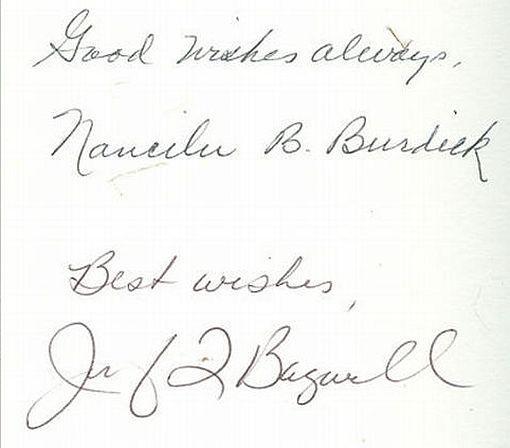 Good wishes always,
Nancilu B. Burdick
Best wishes,
Bagwell